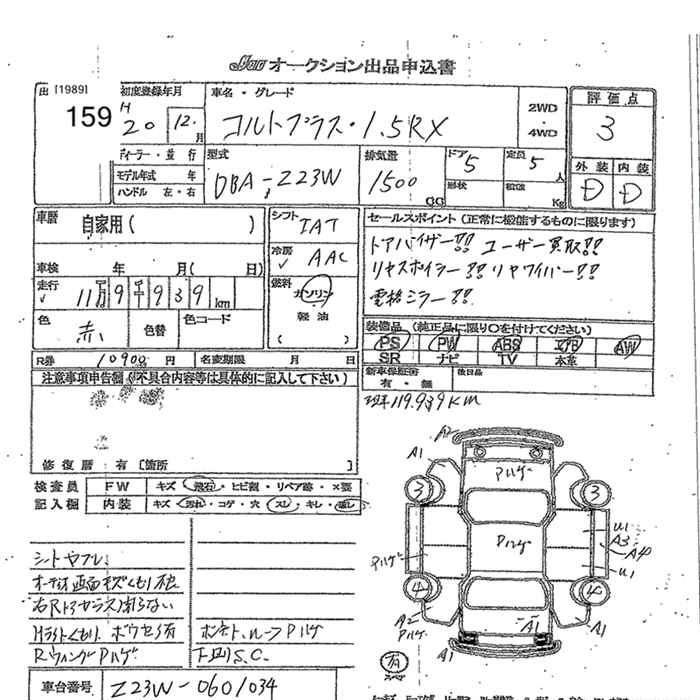 オークション出品申込書
出 [1989]
159
初度登録年月
H
20 12月
車名・グレード
コルトプラス・1.5RX
2WD
・
4WD
評価点
3
外装 内装
D D
ディーラー・並行
モデル年式 年
ハンドル 左・右
型式
DBA-Z23W
排気量
1500
CC
ドア 5
形状
定員 5 人
積載 Kg
車歴
自家用( )
車検 年 月( 日)
走行 11万9千939km
色 赤 色替 色コード
シフト IAT
冷房 AAC
燃料
ガソリン
軽油
( )
セールスポイント(正常に機能するものに限ります)
ドアバイザー!! ユーザー買取!!
リヤスポイラー!! リヤワイパー!!
電格ミラー!!
装備品(純正品に限り○を付けてください)
PS PW ABS エアB AW
SR ナビ TV 本革
新車保証書
有・無
後日品
R券 10900円 名変期限 月 日
注意事項申告欄(不具合内容等は具体的に記入して下さい)
修復歴 有 [箇所 ]
検査員 FW キズ・飛石・ヒビ割・リペア跡・×要
記入欄 内装 キズ・汚れ・コゲ・穴・スレ・キレ・破レ
119.939KM
A2
A1
ハゲ
3 3
U1
A3
A4
ハゲ
Pハゲ
U1
4 4
A2
Pハゲ
A1
A1
A1
スペア
シートヤブレ
右Rドアガラス閉らない
Rウィングハゲ
ボンネット、ルーフPハゲ
下回りS.C.
車台番号 Z23W-0601034